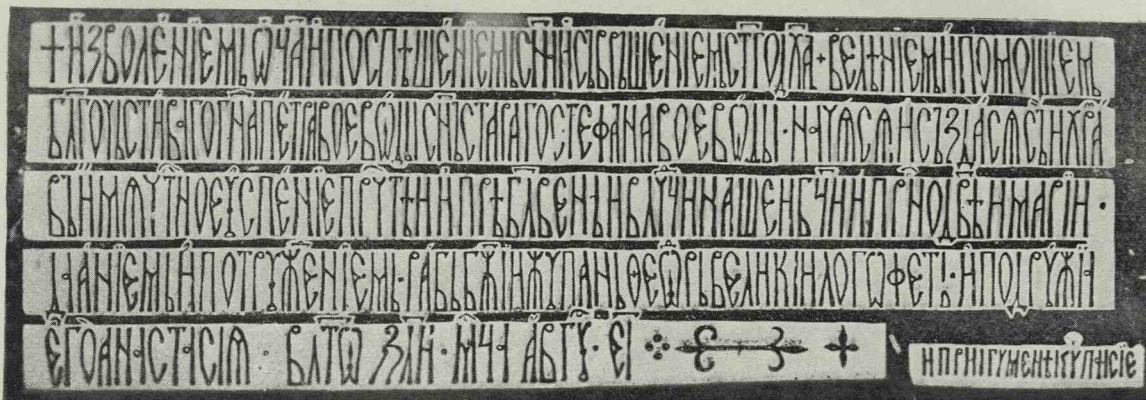 † ИЗВОЛЕНЇЕМЬ ѾЧА И ПОСПѢШЕНЇЕМЬ СНА И СЪВРЪШЕНЇЕМ СТГО ДХА + ВЕЛѢНЇЕМ И ПОМОЩЇЕМ
БЛГОЧЬСТИВАГО ГНА ПЕТРА ВОЕВѠДЫ СНЬ СТАРАГО СТЕФАНА ВОЕВѠДЫ · НАЧѦСѦ И СЪЗДАСѦ СЪИ ХРА
ВЪ ИМѦ ЧТНОЕ УСПЕНЇЕ ПРЧТѢИ И ПРѢБЛВЕНѢИ ВЛЧИ НАШЕИ БЧИ И ПРИНОДВѢИ МАРЇИ ·
ДААНЇЕМЬ И ПОТРУЖЕНЇЕМЬ · РАБЬ БЖЇИ ЖУПАНЬ ѲЕѠРЬ ВЕЛИКЇИ ЛОГѠФЕТЬ · И ПОДРУЖЇА
ЕГО АНАСТАСІА · В ЛТѠ ЗЛИ · МЧА АВГУ · ЕІ
И ПРИ ИГУМЕНѢ КУР ПАИСЇЕ